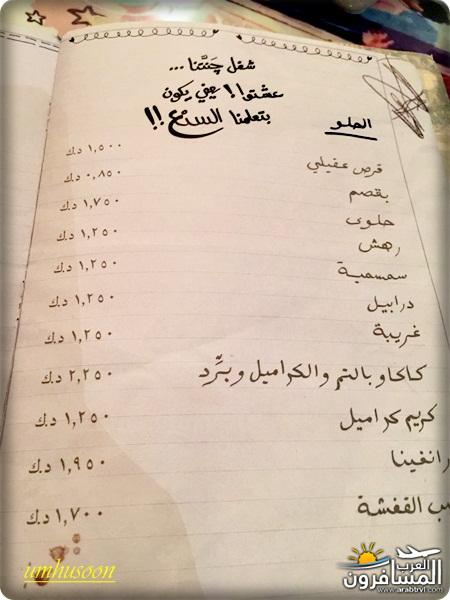 شغل چَنَّتنا ...
عشتوا!! يعني يكون
بتعلمنا السنع!!
الحلو
قرص عقيلي ١,٥٠٠ د.ك
بقصم ٠,٨٥٠ د.ك
حلوى ١,٧٥٠ د.ك
رهش ١,٢٥٠ د.ك
سمسمية ١,٢٥٠ د.ك
درابيل ١,٢٥٠ د.ك
غريبة ١,٢٥٠ د.ك
كاكاو بالتمر والكراميل وبَرِّد ٢,٢٥٠ د.ك
كريم كراميل ١,٢٥٠ د.ك
رانفينا ١,٩٥٠ د.ك
ب القفشة ١,٧٠٠ د.ك
umhusoon
العرب
المسافرون
www.arabtrvl.com